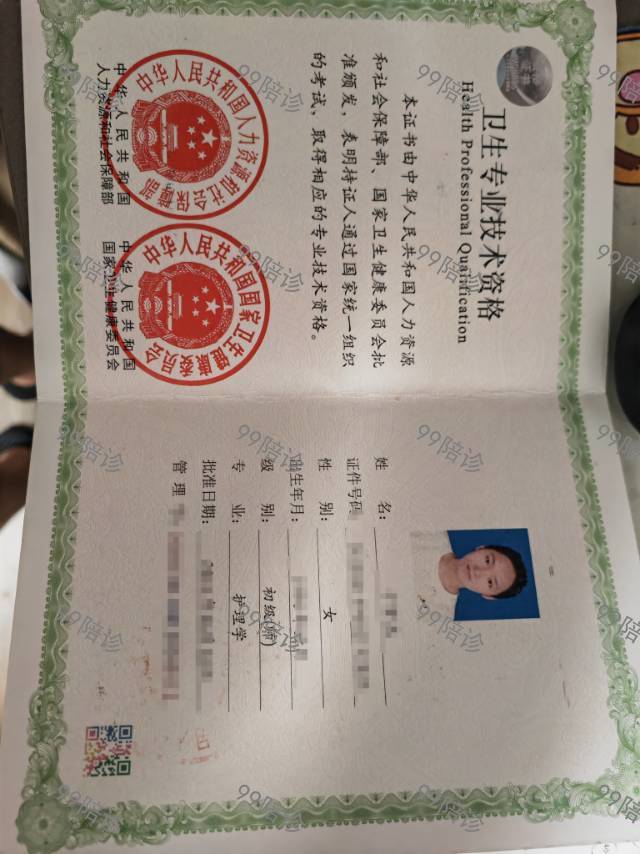 卫生专业技术资格
Health Professional Qualification
本证书由中华人民共和国人力资源
和社会保障部、国家卫生健康委员会批
准颁发，表明持证人通过国家统一组织
的考试，取得相应的专业技术资格。
中华人民共和国人力资源和社会保障部
中华人民共和国
人力资源和社会保障部
中华人民共和国国家卫生健康委员会
中华人民共和国
国家卫生健康委员会
姓 名：
证件号码
性 别： 女
出生年月：
级 别： 初级(师)
专 业： 护理学
批准日期：
管 理
99陪诊